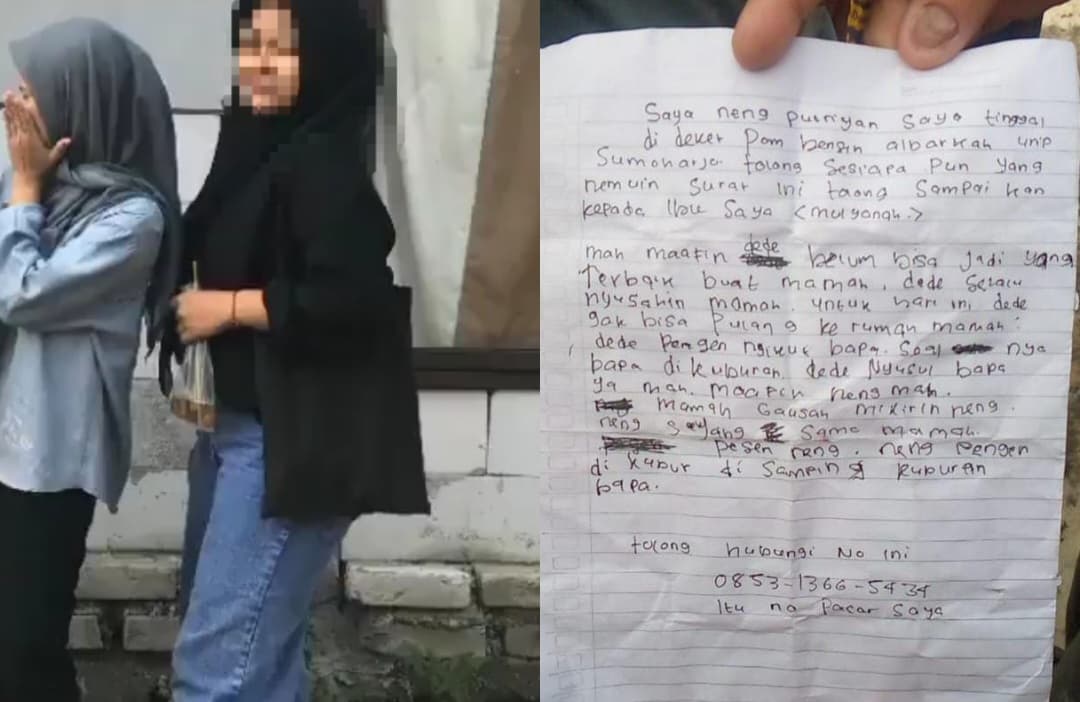 Saya neng putriyan saya tinggal
di deket Pom bengin albarkah unip
Sumoharjo. tolong Sesiapa pun yang
nemuin Surat ini toong Sampai kan
kepada Ibu Saya <mulyanah.>
mah maafin dede belum bisa jadi yang
Terbaik buat mamah, dede Selalu
nyusahin mamah. untuk hari ini, dede
gak bisa Pulang ke rumah mamah.
dede Pengen ngikut bapa. Soal nya
bapa di kuburan. dede Nyusul bapa
ya mah. maafin neng mah.
mamah Gausah mikirin neng.
neng sayang sama mamah.
Pesen neng. neng Pengen
di kubur di Sampin kuburan
bapa.
tolong hubungi No ini
0853-1366-5434
Itu no Pacar Saya